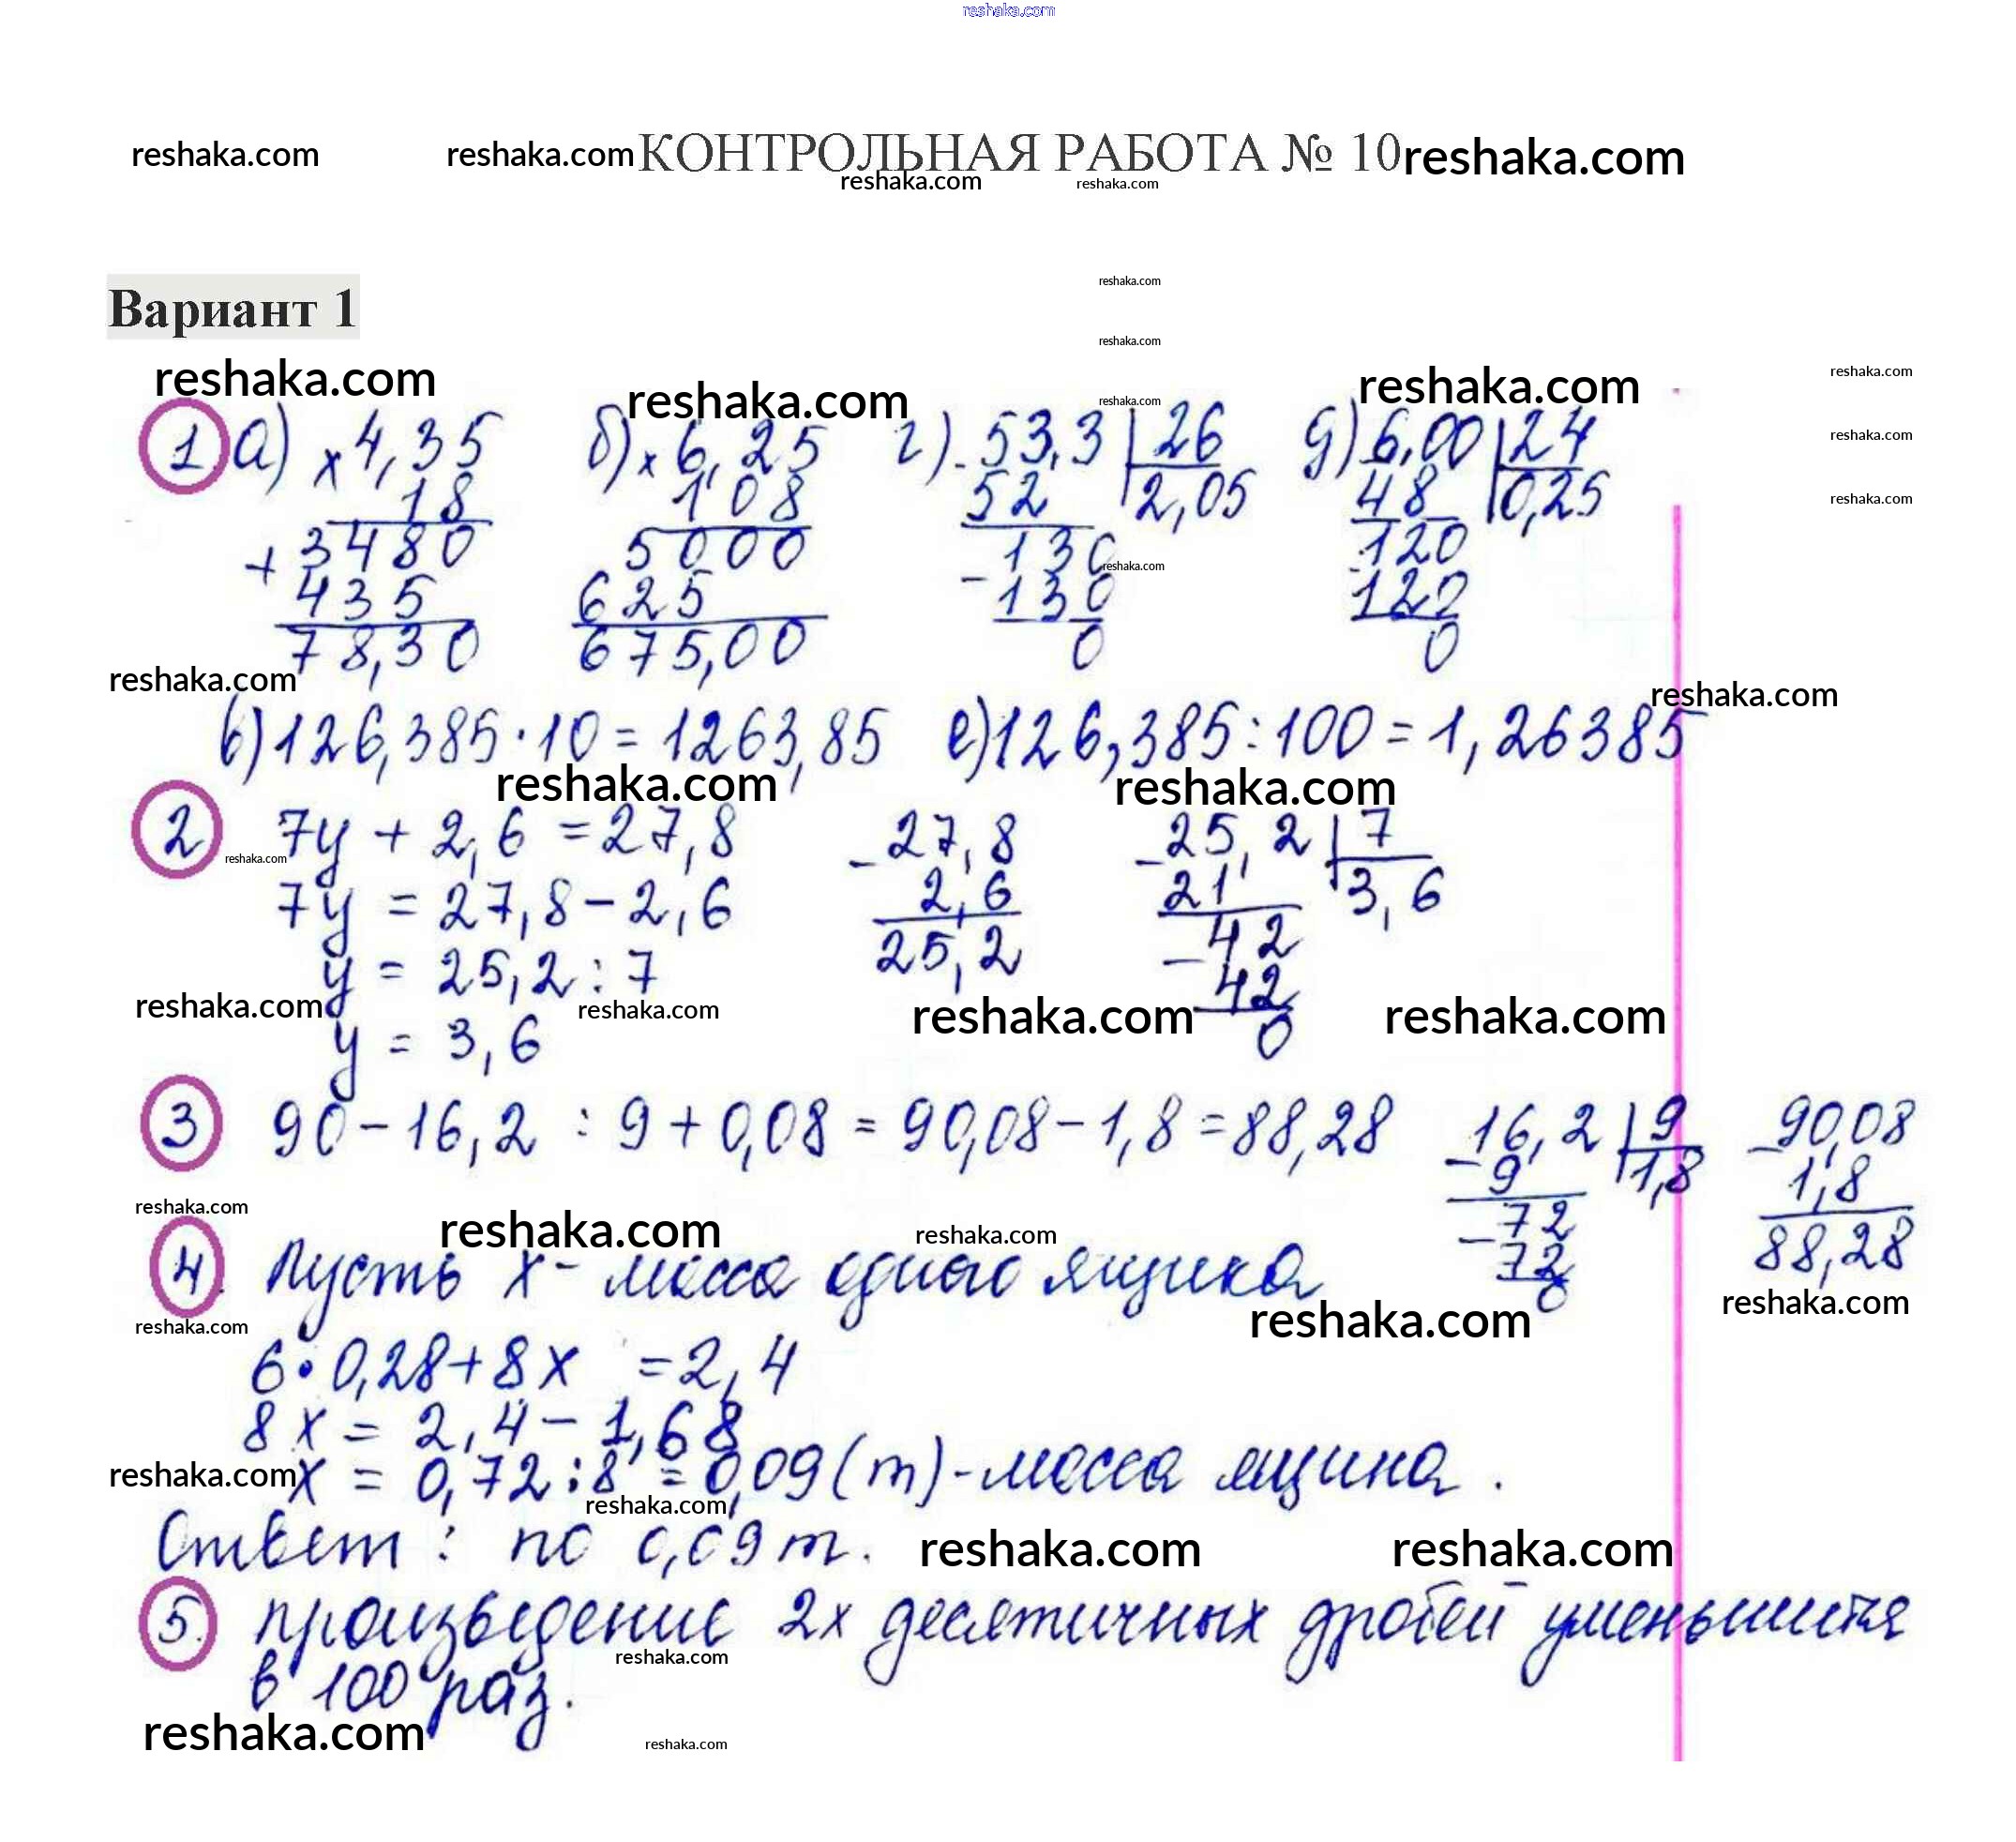 reshaka.com
reshaka.com reshaka.com КОНТРОЛЬНАЯ РАБОТА № 10 reshaka.com
reshaka.com reshaka.com
reshaka.com
Вариант 1
reshaka.com
reshaka.com reshaka.com reshaka.com reshaka.com
reshaka.com
1 а) × 4,35 б) × 6,25 г) - 53,3 | 26 д) 6,00 | 24 reshaka.com
18 108 52 2,05 48 0,25 reshaka.com
+ 3480 5000 130 120
reshaka.com
435 625 - 130 120
78,30 675,00 0 0
reshaka.com reshaka.com
в) 126,385 · 10 = 1263,85 е) 126,385 : 100 = 1,26385
reshaka.com reshaka.com
2 7y + 2,6 = 27,8 - 27,8 - 25,2 | 7
reshaka.com
7y = 27,8 - 2,6 2,6 21 3,6
25,2 - 42
y = 25,2 : 7 42
reshaka.com reshaka.com reshaka.com reshaka.com
y = 3,6 0
3 90 - 16,2 : 9 + 0,08 = 90,08 - 1,8 = 88,28 - 16,2 | 9 - 90,08
9 1,8 1,8
reshaka.com reshaka.com reshaka.com - 72 88,28
4. Пусть х - масса одного ящика 72
reshaka.com reshaka.com 0 reshaka.com
6 · 0,28 + 8х = 2,4
8х = 2,4 - 1,68
reshaka.com х = 0,72 : 8 = 0,09 (т) - масса ящика.
reshaka.com
Ответ : по 0,09 т. reshaka.com reshaka.com
5. произведение 2х десятичных дробей уменьшится
reshaka.com
в 100 раз.
reshaka.com reshaka.com